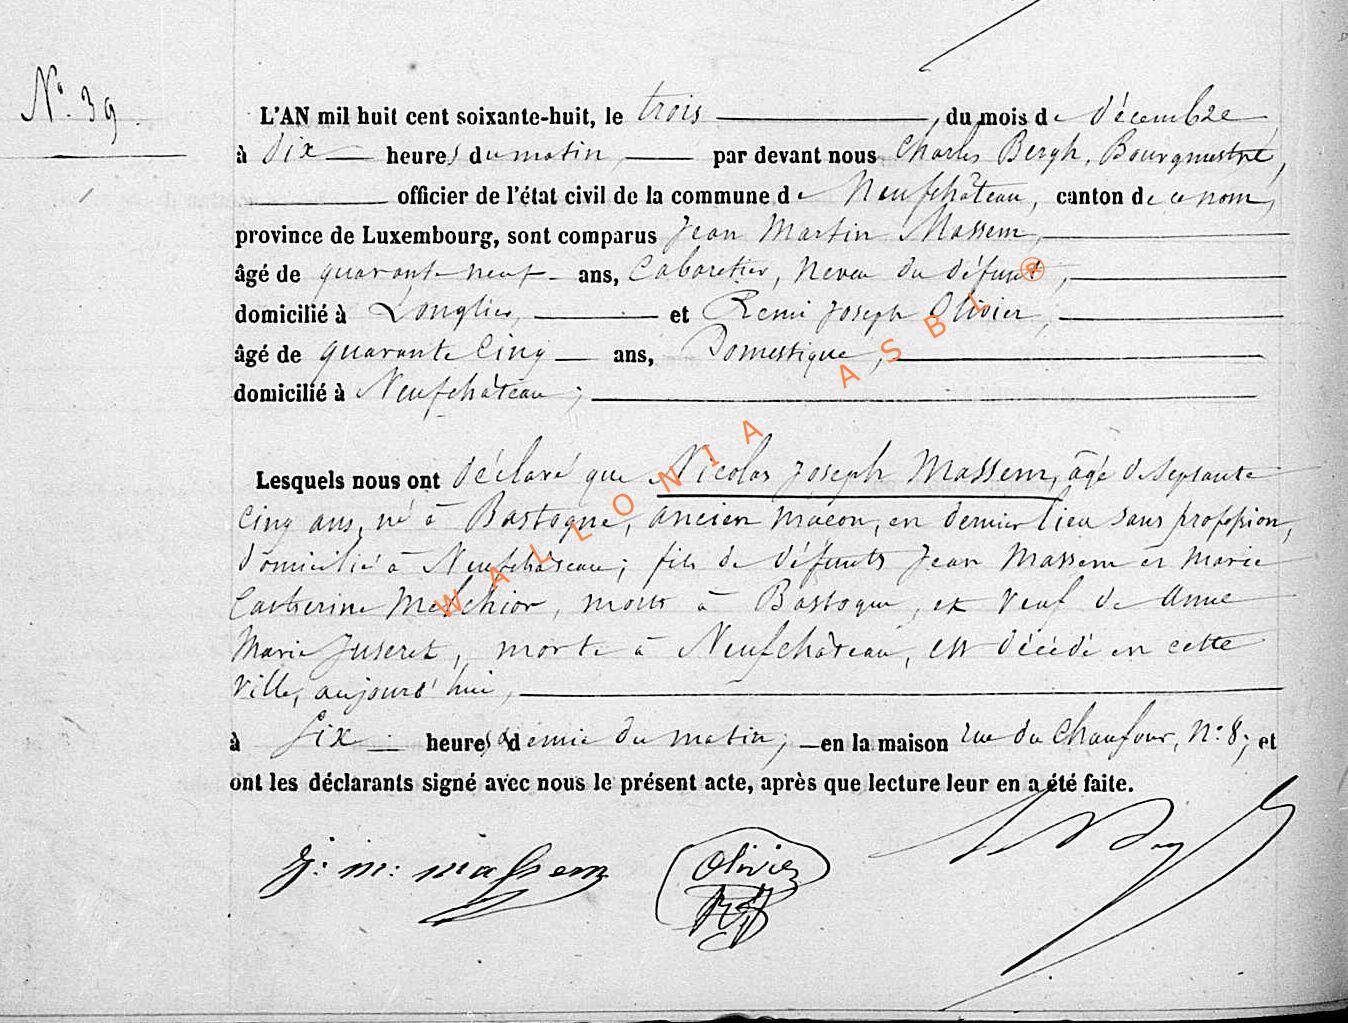 N° 39.
L'AN mil huit cent soixante-huit, le trois, du mois de décembre
à dix heures du matin, par devant nous Charles Bergh, Bourgmestre,
officier de l'état civil de la commune de Neufchâteau, canton de ce nom,
province de Luxembourg, sont comparus Jean Martin Massem,
âgé de quarante neuf ans, Cabaretier, neveu du défunt,
domicilié à Longlier, et Remi Joseph Olivier,
âgé de quarante cinq ans, Domestique,
domicilié à Neufchâteau;
Lesquels nous ont déclaré que Nicolas Joseph Massem, âgé de septante
cinq ans, né à Bastogne, ancien maçon, en dernier lieu sans profession,
domicilié à Neufchâteau; fils de défunts Jean Massem et Marie
Catherine Melchior, morts à Bastogne, et veuf de Anne
Marie Juseret, morte à Neufchâteau, est décédé en cette
ville, aujourd'hui,
à six heures & demie du matin, en la maison rue du Chaufour, N° 8; et
ont les déclarants signé avec nous le présent acte, après que lecture leur en a été faite.
J: M: Massem Olivier RJ
WALLONIA ASBL ®